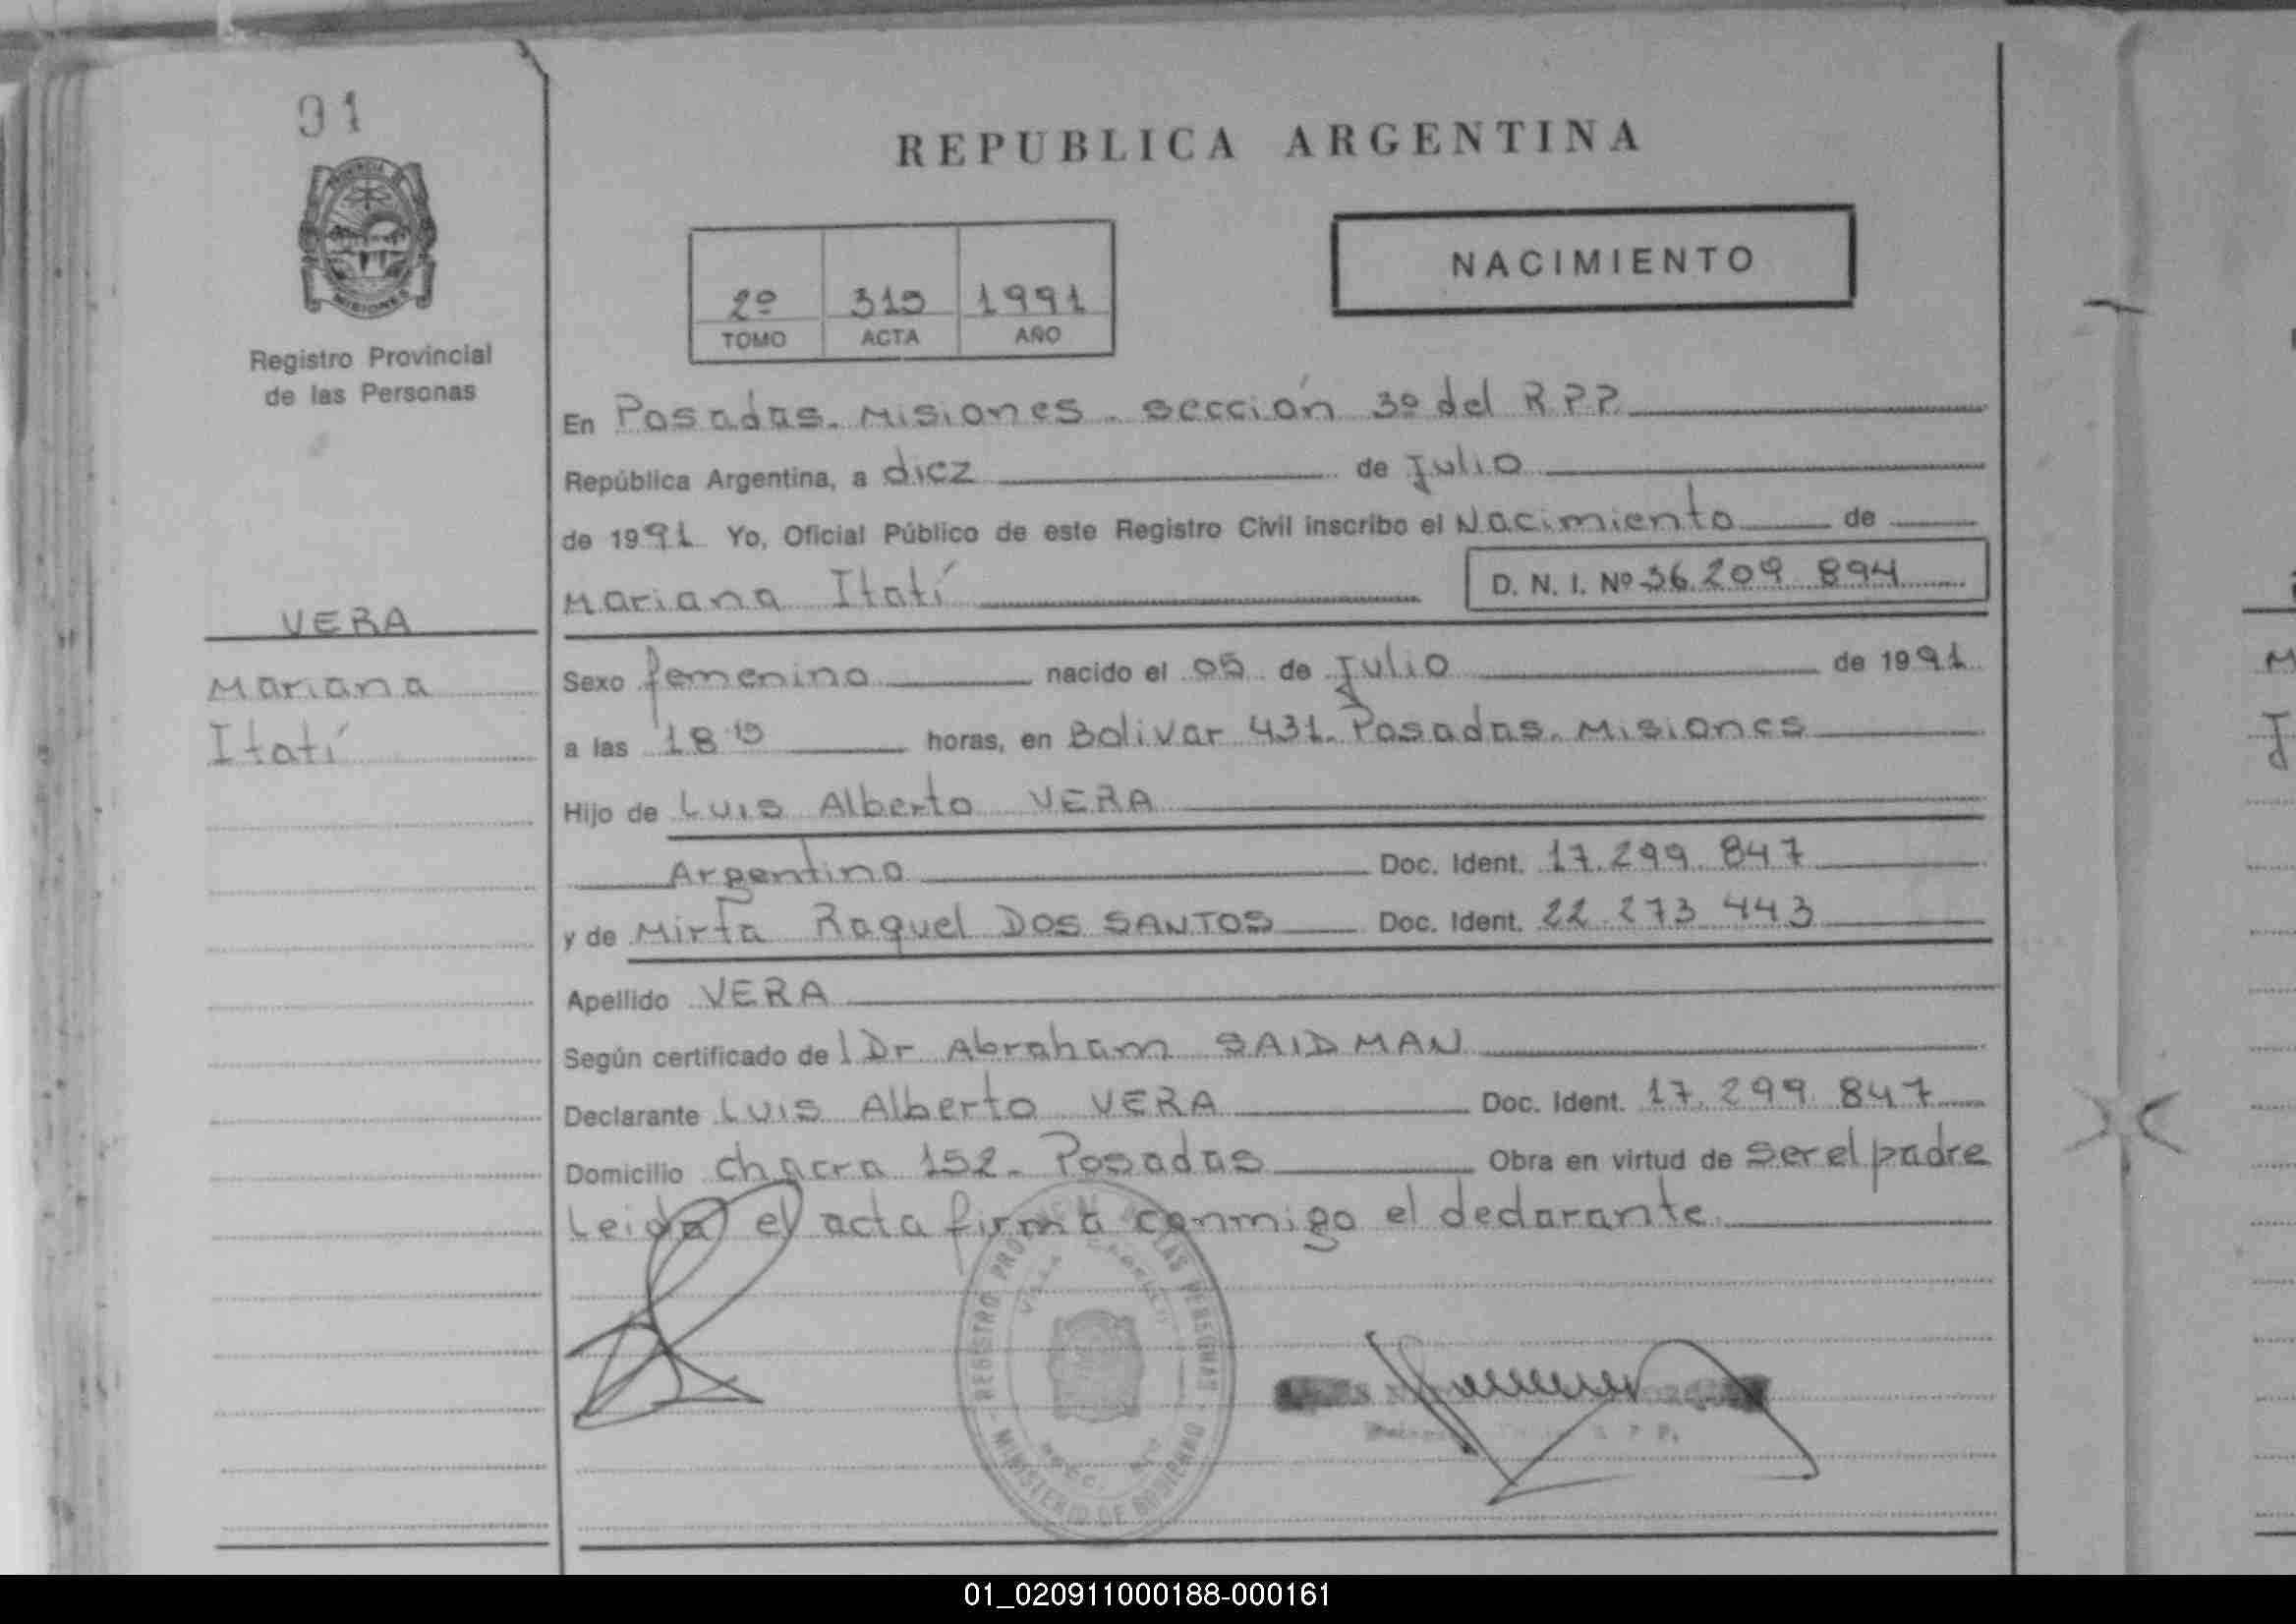 91
REPUBLICA ARGENTINA
NACIMIENTO
2º 319 1991
TOMO ACTA AÑO
Registro Provincial
de las Personas
En Posadas. Misiones. sección 3º del R P P
República Argentina, a diez de Julio
de 1991 Yo, Oficial Público de este Registro Civil inscribo el Nacimiento de
Mariana Itatí D. N. I. Nº 36 209 894
VERA
Mariana
Itatí
Sexo femenino nacido el 05 de Julio de 1991
a las 18 15 horas, en Bolivar 431. Posadas. Misiones
Hijo de Luis Alberto VERA
Argentino Doc. Ident. 17.299.847
y de Mirta Raquel DOS SANTOS Doc. Ident. 22.273 443
Apellido VERA
Según certificado del Dr Abraham SAIDMAN
Declarante Luis Alberto VERA Doc. Ident. 17.299.847
Domicilio chacra 152. Posadas Obra en virtud de ser el padre
Leida el acta firma conmigo el declarante
REGISTRO PROVINCIAL DE LAS PERSONAS
MINISTERIO DE GOBIERNO
01_020911000188-000161